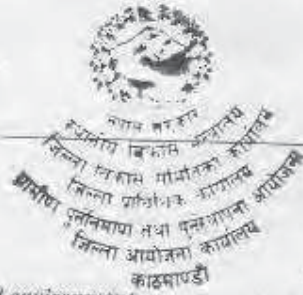 नेपाल सरकार
स्थानीय विकास मन्त्रालय
जिल्ला विकास समितिको कार्यालय
जिल्ला प्राविधिक कार्यालय
ग्रामीण पुर्ननिर्माण तथा पुनरस्थापना आयोजना
जिल्ला आयोजना कार्यालय
काठमाण्डौ